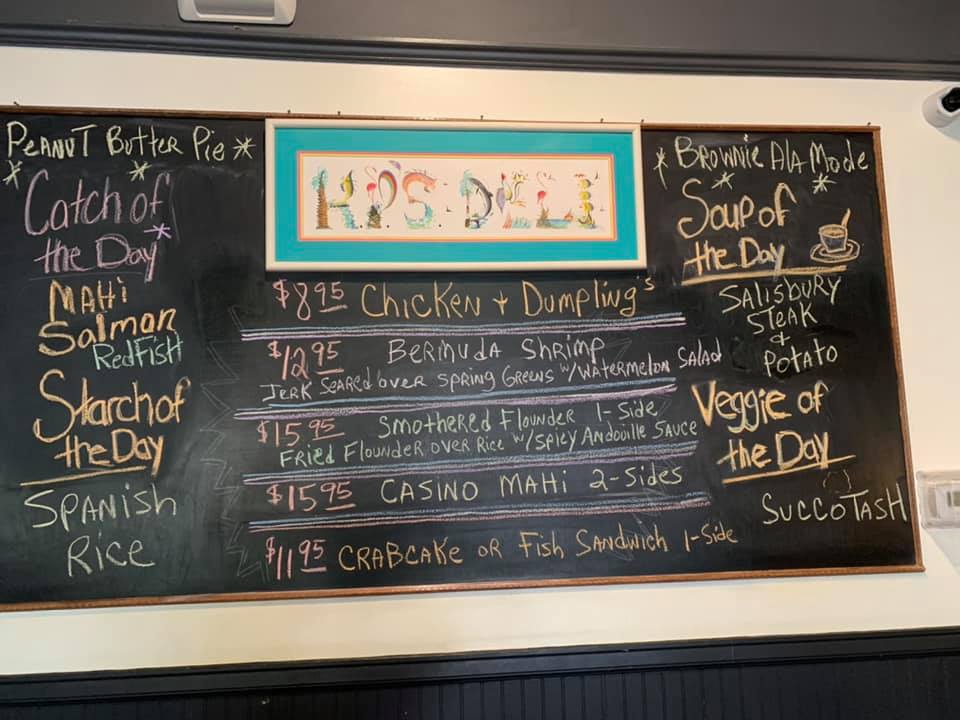 PEANUT BUTTER PIE
Catch of
the Day
MAHi
Salmon
RedFisH
Starch of
the Day
SPANISH
Rice
H.P.'S. DELI
$8.95 CHicKEN + DUMPLiNg's
$12.95 BERMUDA SHRiMP
JERK SEARED OVER SPRiNG GREENS W/ WATERMELON SALAD
$15.95 SMOTHERED FLOUNDER 1-Side
FRiED FLOUNDER OVER RiCE W/ SPiCY ANDOUiLLE SAUCE
$15.95 CASiNO MAHi 2-SidES
$11.95 CRABCAKE OR FiSH SANDWICH 1-Side
BROWNiE ALA MODE
Soup of
the Day
SALiSBURY
STEAK
&
POTATO
Veggie of
the Day
SUCCOTASH